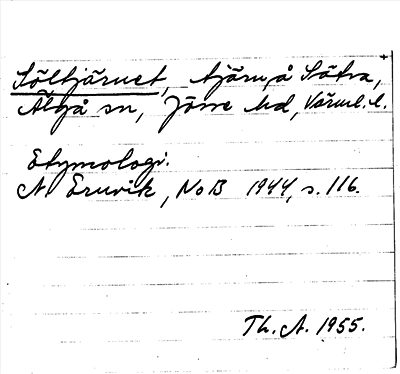 Sältjärnet, tjärn, å Sätra,
Älgå sn, Jösse hd, Värml. l.
Etymologi.
N. Eruvik, NoB 1944, s. 116.
Th. A. 1955.